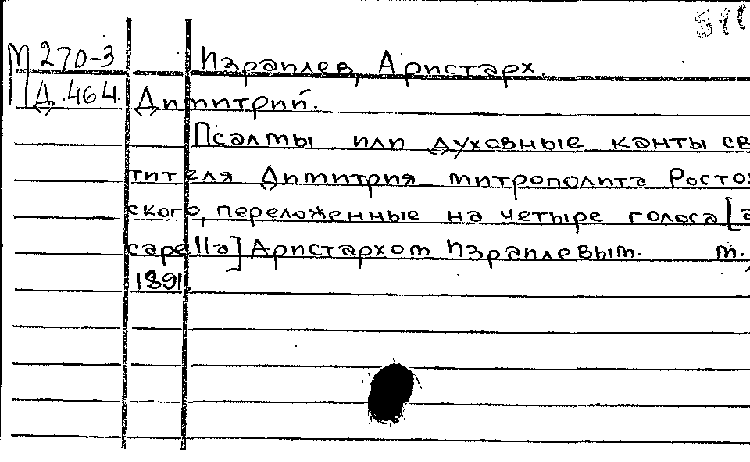 М 270-3 Израилев, Аристарх.
Д.464. Димитрий.
Псалмы или духовные канты св
тителя Димитрия митрополита Росто
ского, переложенные на четыре голоса [a
capella] Аристархом Израилевым. м.,
1891